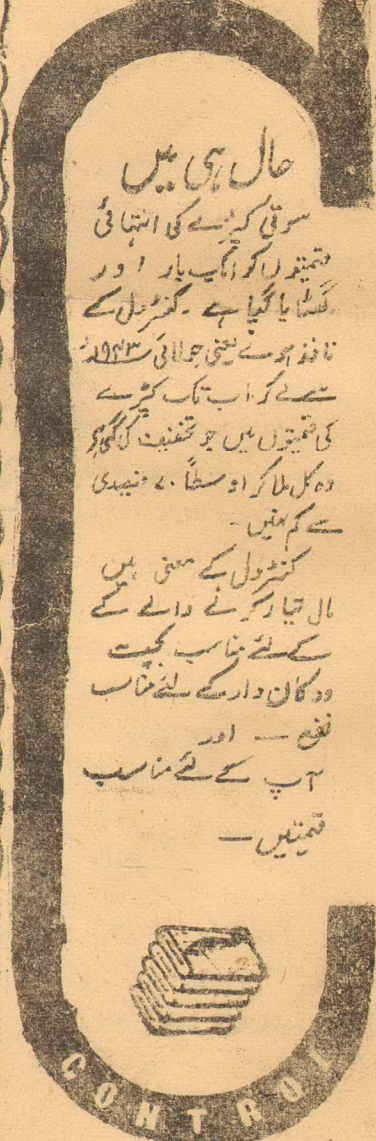 حال ہی میں
سوتی کپڑے کی انتہائی
قیمتوں کو ایک بار اور
گھٹایا گیا ہے ۔ کنٹرول کے
نافذ ہونے یعنی جولائی ۱۹۴۳ء
سے لے کر اب تک کپڑے
کی قیمتوں میں جو تخفیف کی گئی ہے
وہ کل ملا کر اوسطاً ۷۰ فیصدی
سے کم نہیں ۔
کنٹرول کے معنی ہیں
مال تیار کرنے والے کے
کے لئے مناسب بچت
دوکان دار کے لئے مناسب
نفع — اور
آپ کے لئے مناسب
قیمتیں —
CONTROL